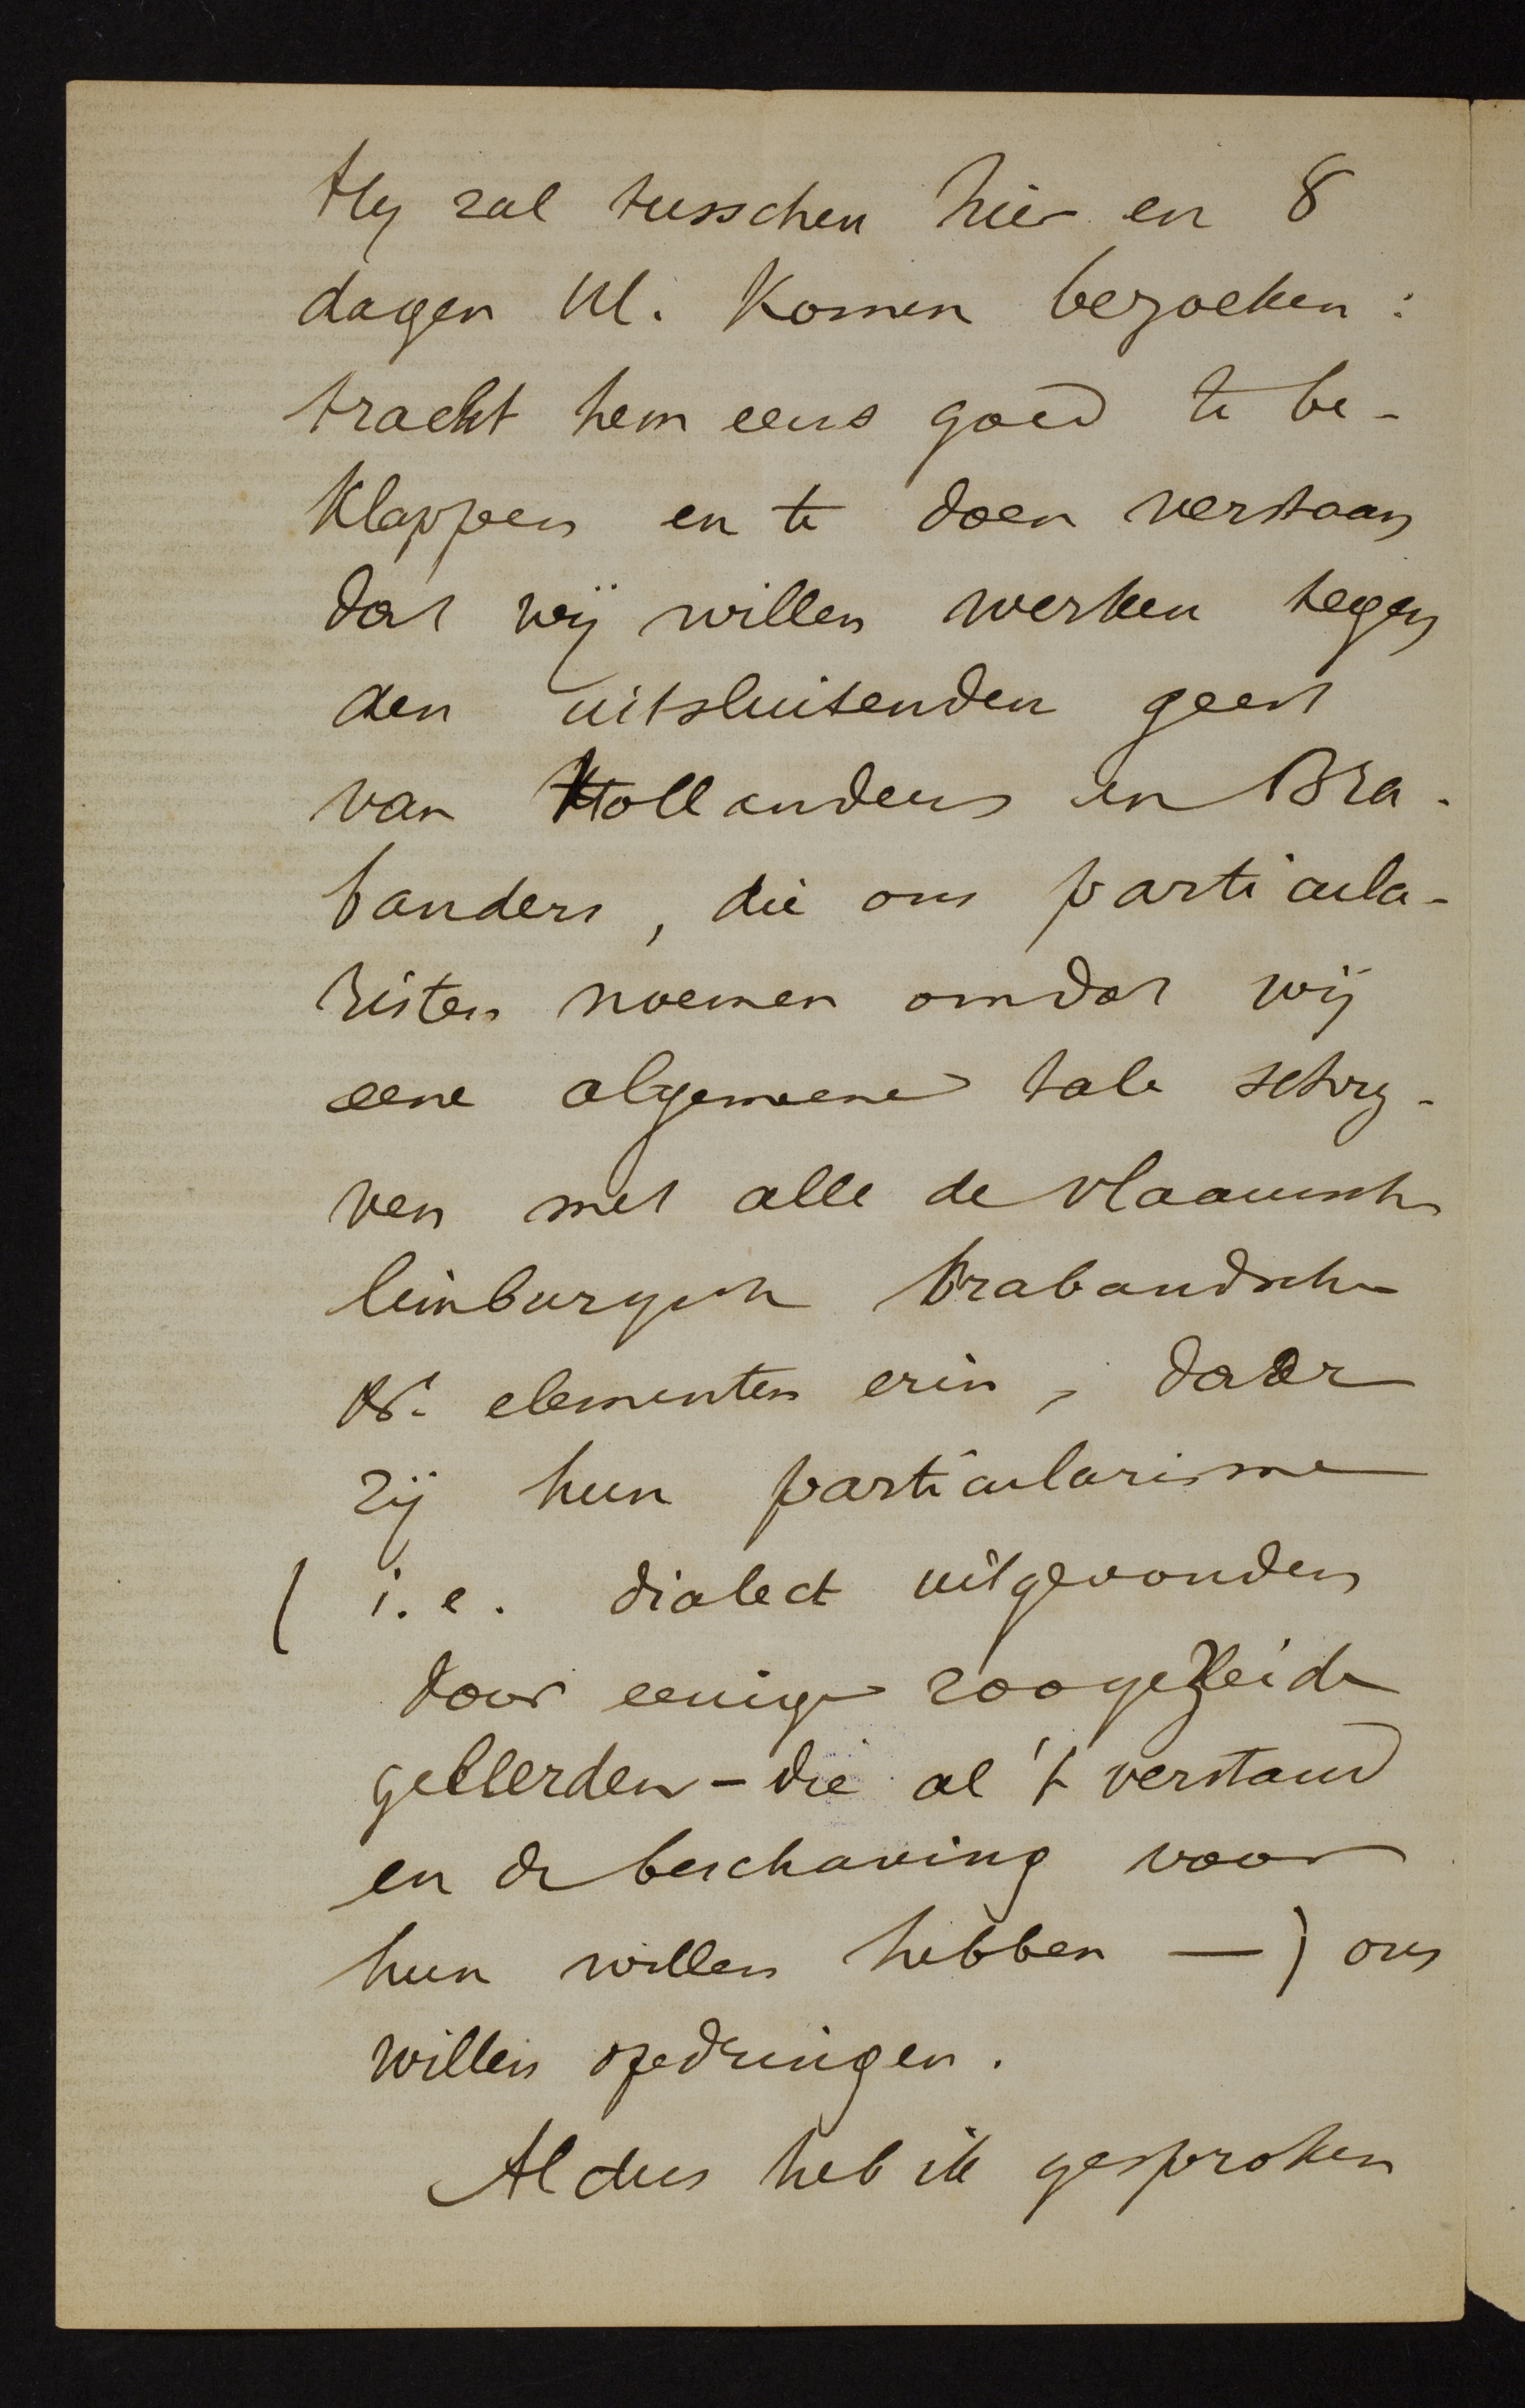 Hy zal tusschen hier en 8
dagen Ul. komen bezoeken :
tracht hem eens goed te be-
klappen en te doen verstaan
dat wij willen werken tegen
den uitsluitenden geest
van Hollanders en Bra-
banders, die ons particula-
risten noemen omdat wij
eene algemeene tale schry-
ven met alle de vlaamsche
limburgsch brabandsche
&. elementen erin, daar
zij hun particularisme
( i.e. dialect uitgevonden
door eenige zoogezeide
geleerden - die al 't verstand
en de beschaving voor
hun willen hebben — ) ons
willen opdringen.
Aldus heb ik gesproken